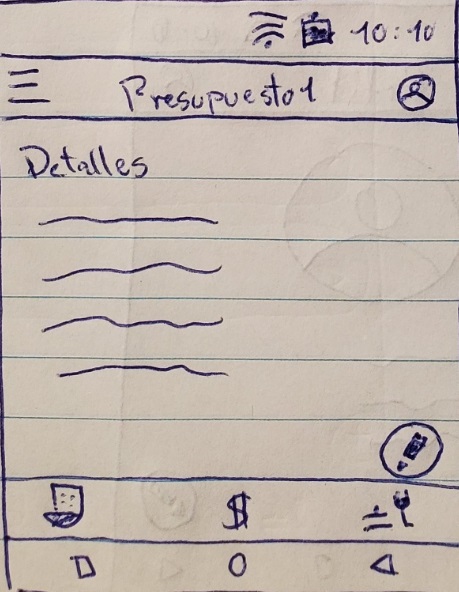 10:10
Presupuesto1
Detalles
$